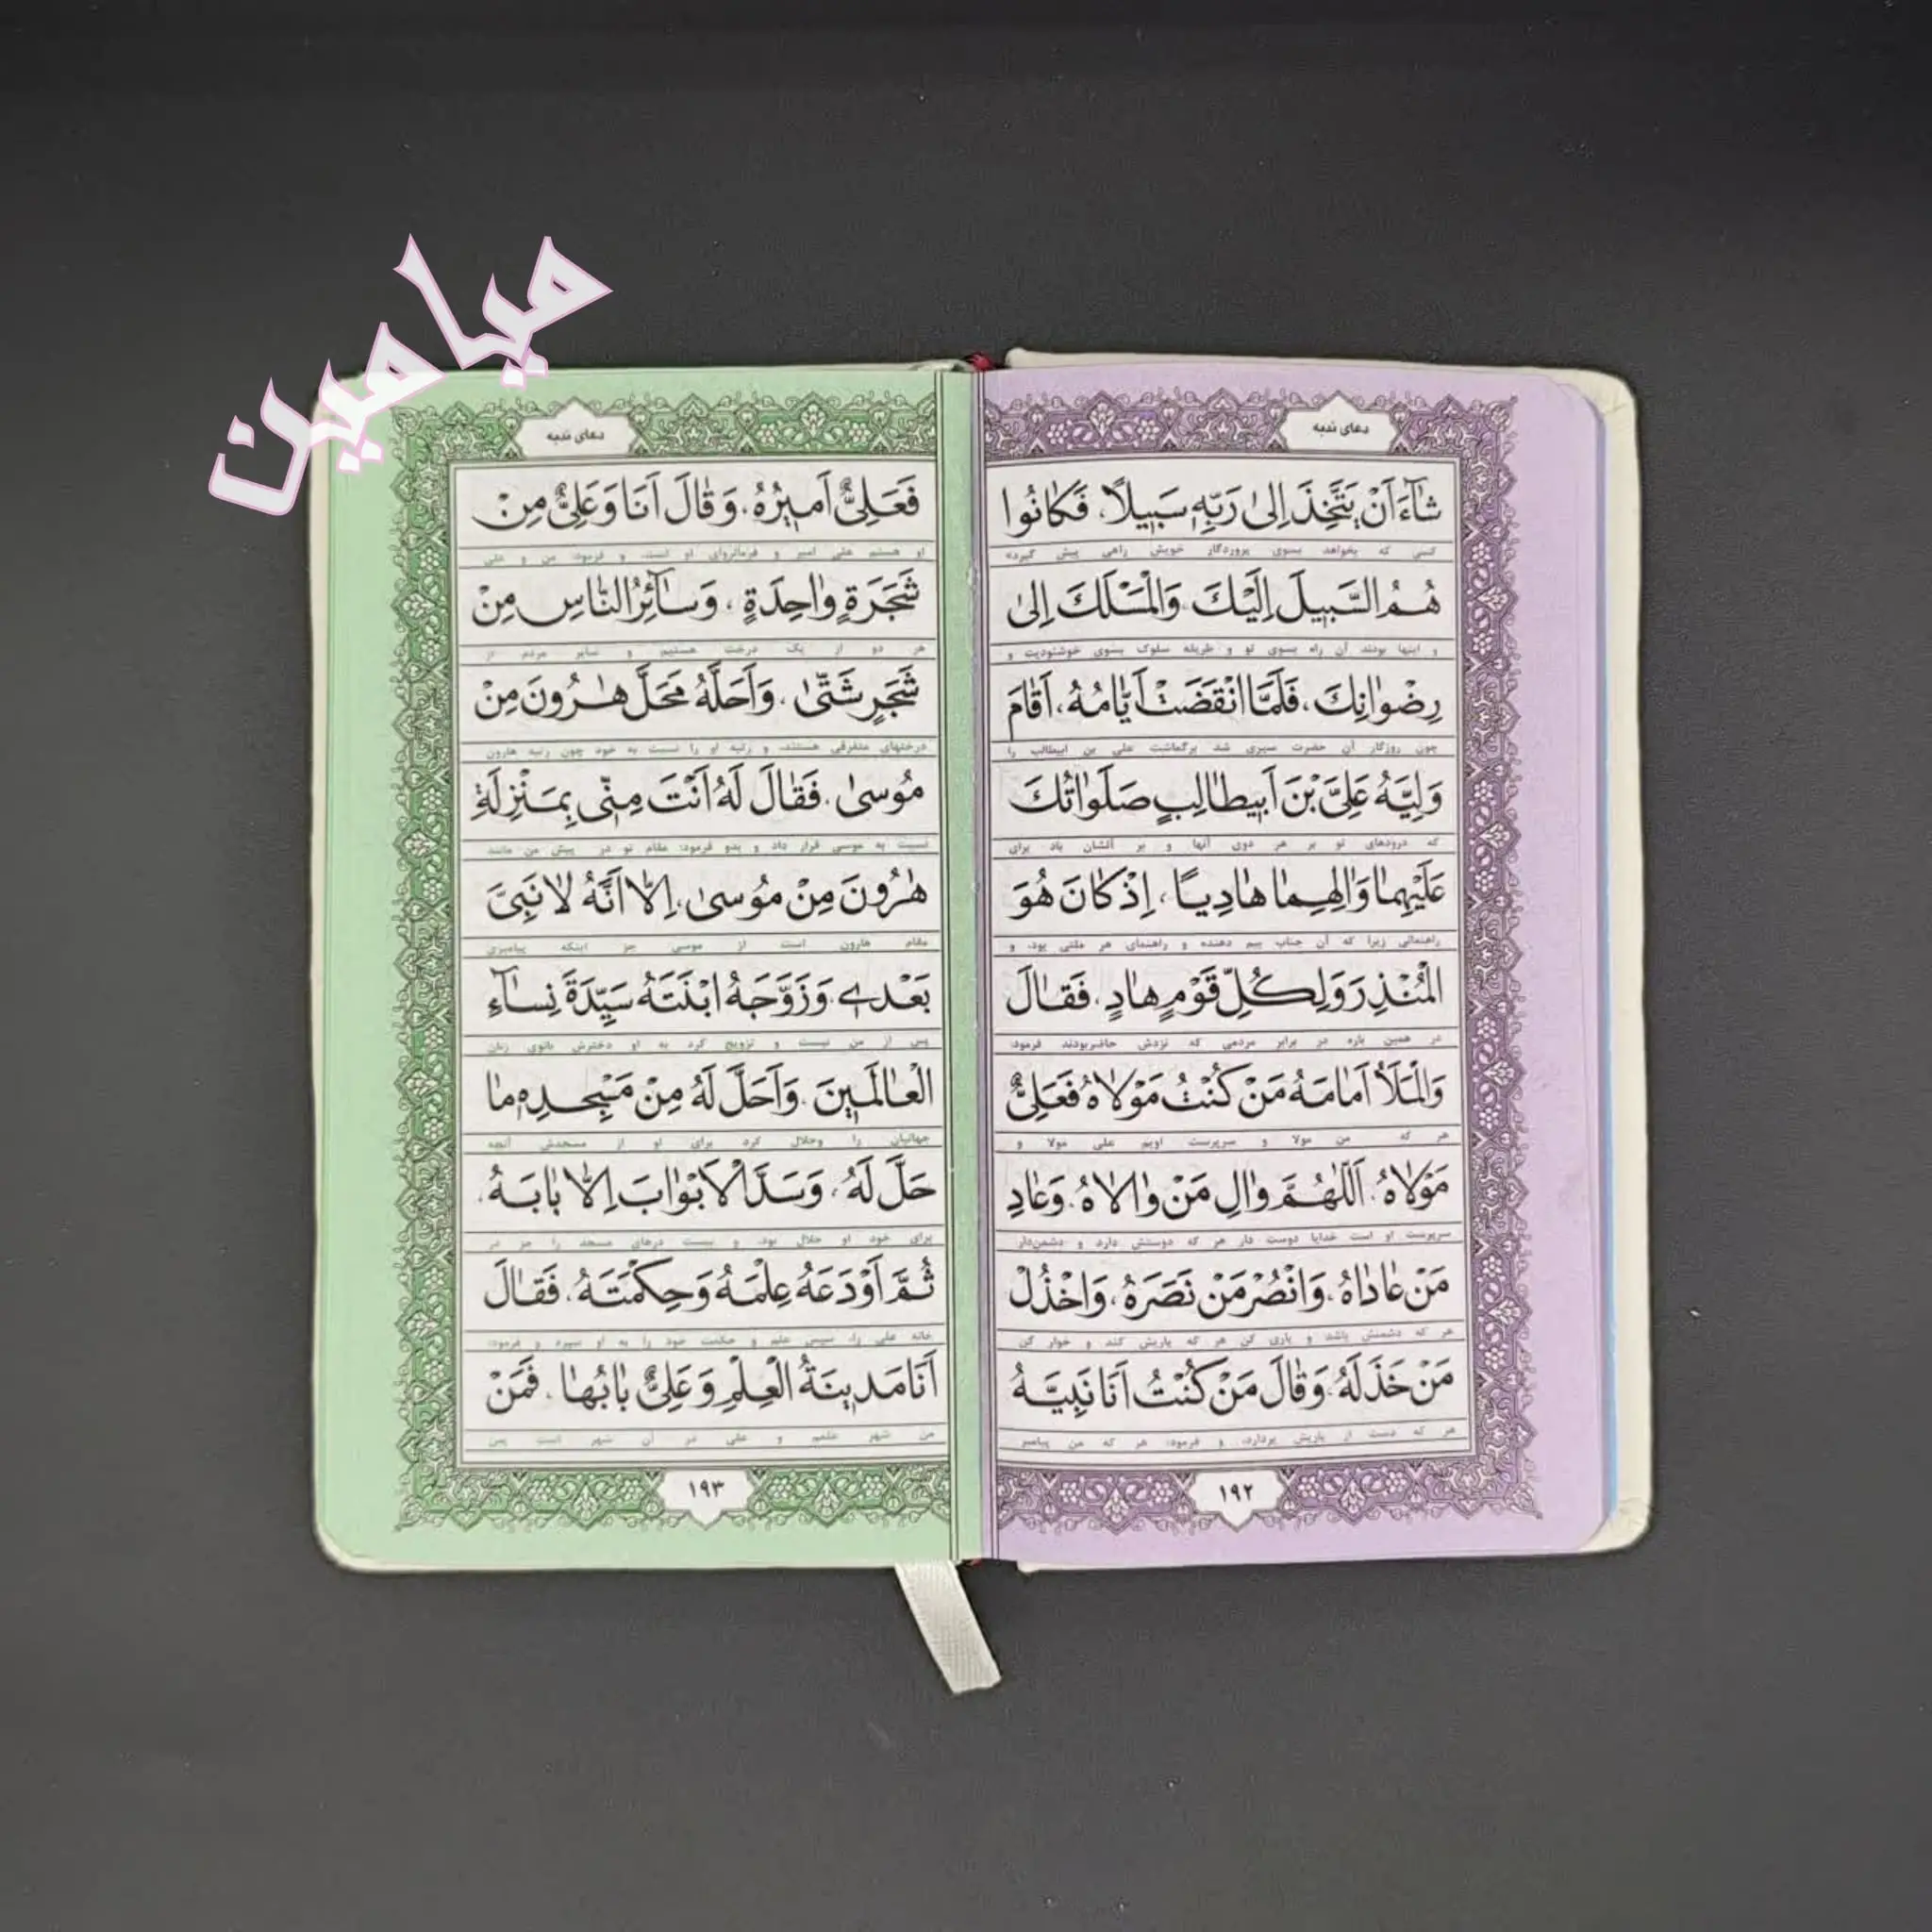 میامین
دعای ندبه
شَآءَ اَنْ يَتَّخِذَ اِلىٰ رَبِّهٖ سَبيلًا، فَكانُوا
کسی که بخواهد بسوی پروردگار خویش راهی پیش گیرد»
هُمُ السَّبيلَ اِلَيْكَ وَالْمَسْلَكَ اِلىٰ
و اینها بودند آن راه بسوی تو و طریقه سلوک بسوی خوشنودیت و
رِضْوانِكَ، فَلَمَّا انْقَضَتْ اَيّامُهُ، اَقامَ
چون روزگار آن حضرت سپری شد برگماشت علی بن ابیطالب را
وَلِيَّهُ عَلِىَّ بْنَ اَبيطالِبٍ صَلَواتُكَ
که درودهای تو بر هر دوی آنها و بر آلشان باد برای
عَلَيْهِما وَالِهِما هادِيًا، اِذْ كانَ هُوَ
راهنمائی زیرا که آن جناب بیم دهنده و راهنمای هر ملتی بود، و
الْمُنْذِرَ وَلِكُلِّ قَوْمٍ هادٍ، فَقالَ
در همین باره در برابر مردمی که نزدش حاضر بودند فرمود:
وَالْمَلَأُ اَمامَهُ مَنْ كُنْتُ مَوْلاهُ فَعَلِىٌّ
هر که من مولا و سرپرست اویم علی مولا و
مَوْلاهُ، اَللّٰهُمَّ والِ مَنْ والاهُ، وَعادِ
سرپرست او است خدایا دوست دار هر که دوستش دارد و دشمن‌دار
مَنْ عاداهُ، وَانْصُرْ مَنْ نَصَرَهُ، وَاخْذُلْ
هر که دشمنش باشد و یاری کن هر که یاریش کند و خوار کن
مَنْ خَذَلَهُ، وَقالَ مَنْ كُنْتُ اَنَا نَبِيَّهُ
هر که دست از یاریش بردارد، و فرمود: هر که من پیامبر
۱۹۲
دعای ندبه
فَعَلِىٌّ اَميرُهُ، وَقالَ اَنَا وَعَلِىٌّ مِنْ
او هستم علی امیر و فرمانروای او است، و فرمود: من و علی
شَجَرَةٍ واحِدَةٍ، وَسآئِرُ النّاسِ مِنْ
هر دو از یک درخت هستیم و سایر مردم از
شَجَرٍ شَتّىٰ، وَاَحَلَّهُ مَحَلَّ هٰرُونَ مِنْ
درختهای متفرقی هستند، و رتبه او را نسبت به خود چون رتبه هارون
مُوسىٰ، فَقالَ لَهُ اَنْتَ مِنّى بِمَنْزِلَةِ
نسبت به موسی قرار داد و بدو فرمود: مقام تو در پیش من مانند
هٰرُونَ مِنْ مُوسىٰ، اِلّا اَنَّهُ لا نَبِىَّ
مقام هارون است از موسی جز اینکه پیامبری
بَعْدى، وَزَوَّجَهُ ابْنَتَهُ سَيِّدَةَ نِسآءِ
پس از من نیست و تزویج کرد به او دخترش بانوی زنان
الْعالَمينَ، وَاَحَلَّ لَهُ مِنْ مَسْجِدِهٖ ما
جهانیان را و حلال کرد برای او از مسجدش آنچه
حَلَّ لَهُ، وَسَدَّ الْاَبْوابَ اِلّا بابَهُ،
برای خود او حلال بود، و بست درهای مسجد را جز در
ثُمَّ اَوْدَعَهُ عِلْمَهُ وَحِكْمَتَهُ، فَقالَ
خانه علی را، سپس علم و حکمت خود را به او سپرد و فرمود:
اَنَا مَدينَةُ الْعِلْمِ وَعَلِىٌّ بابُها، فَمَنْ
من شهر علمم و علی در آن شهر است پس
۱۹۳